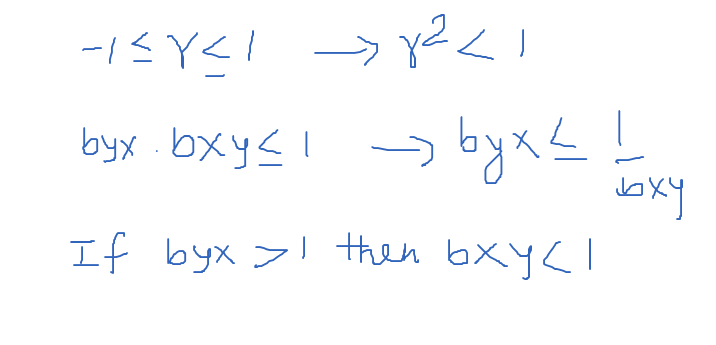 -1 ≤ r ≤ 1 → r² < 1
byx . bxy ≤ 1 → byx ≤ 1/bxy
If byx > 1 then bxy < 1